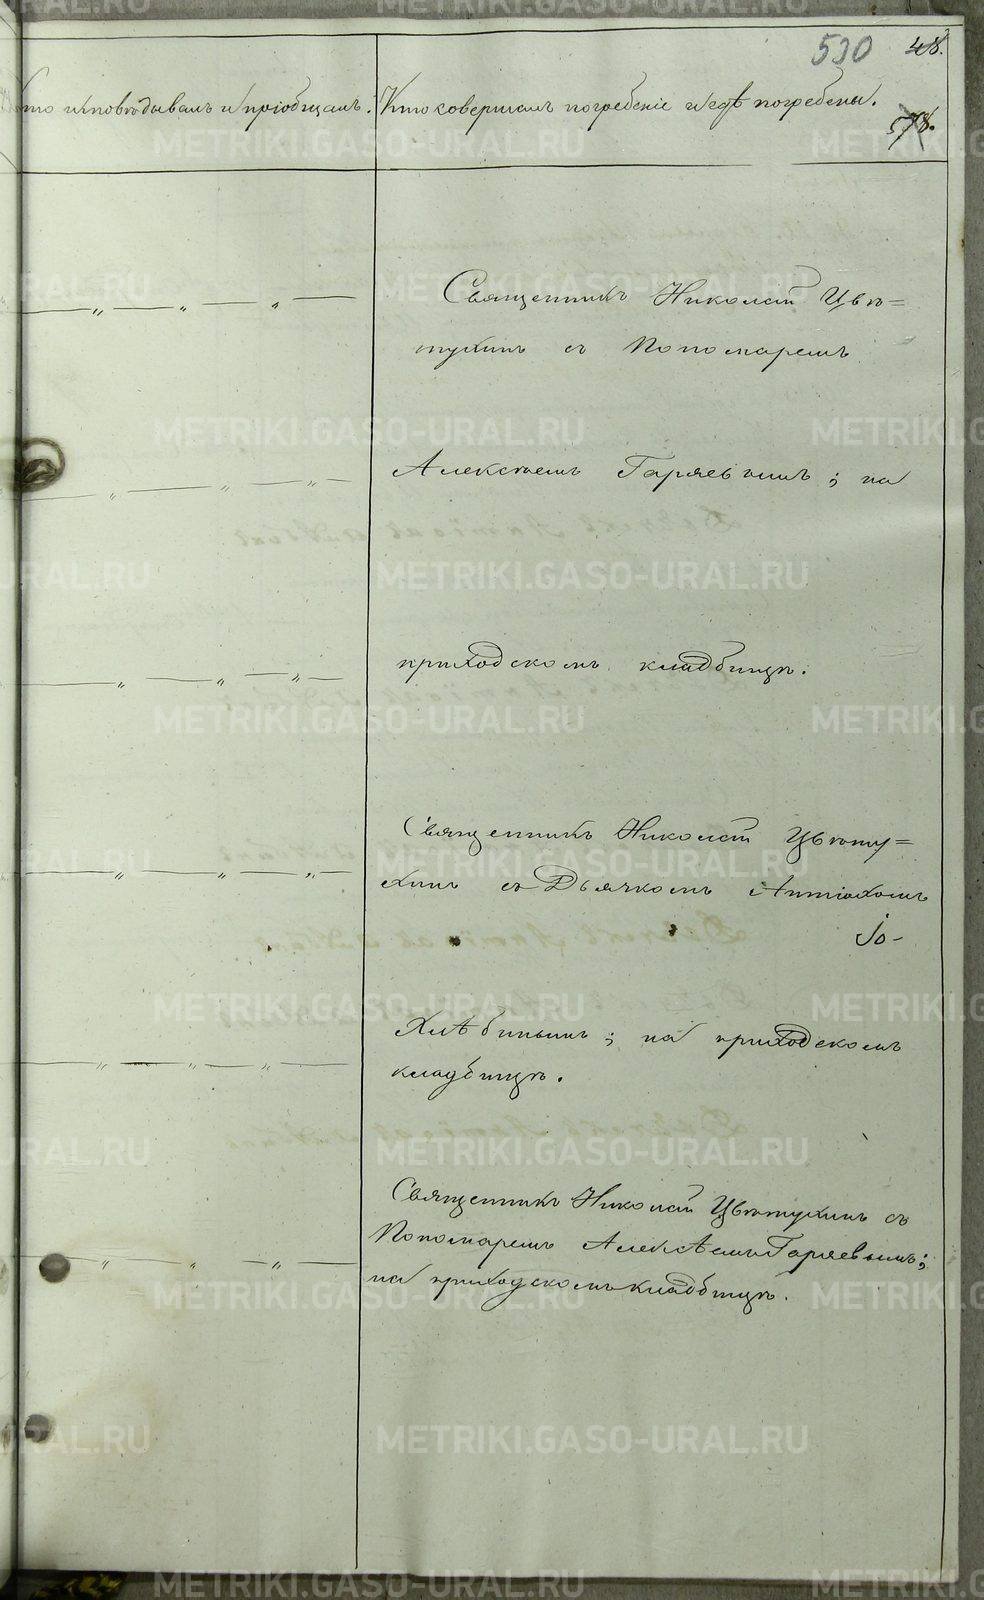 530 48.
Кто исповѣдывалъ и пріобщалъ. Кто совершалъ погребеніе и гдѣ погребены.
578.
Священникъ Николай Цвѣ=
тухинъ съ Пономаремъ
Алексѣемъ Гаряевымъ; на
приходскомъ кладбищѣ.
Священникъ Николай Цвѣту=
хинъ съ Дьячкомъ Антіохомъ
Хлѣбинымъ; на приходскомъ
кладбищѣ.
Священникъ Николай Цвѣтухинъ съ
Пономаремъ Алексѣемъ Гаряевымъ;
на приходскомъ кладбищѣ.
METRIKI.GASO-URAL.RU